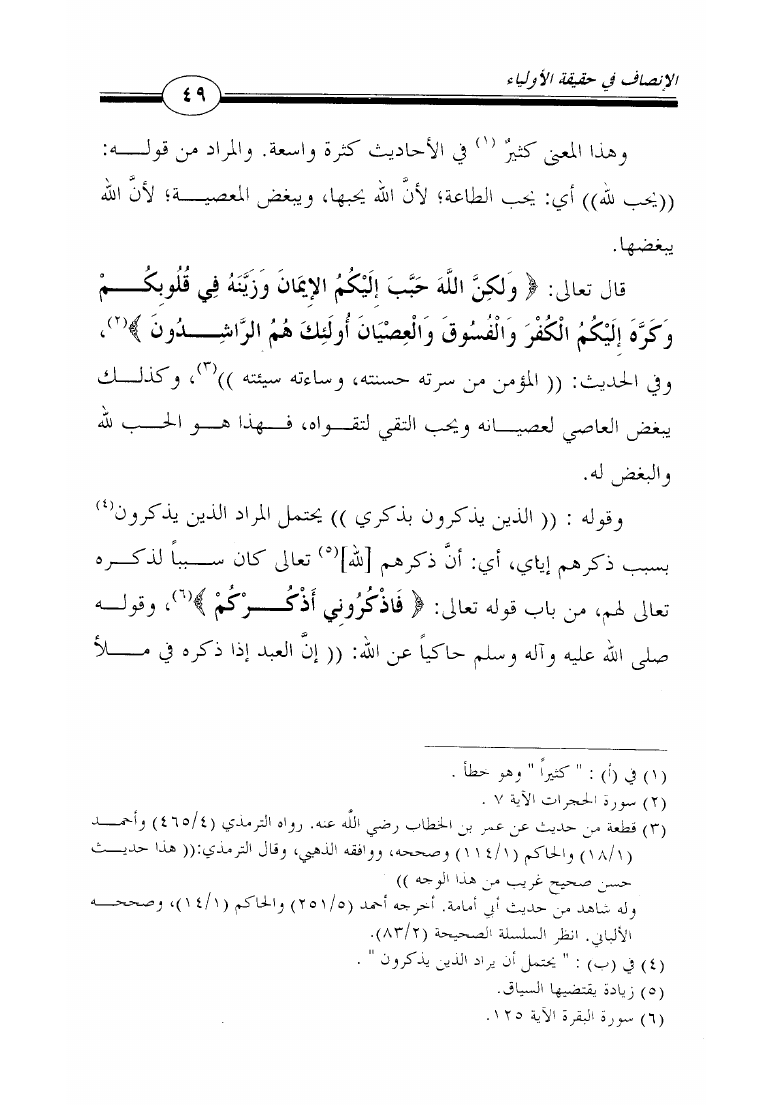 الإنصاف في حقيقة الأولياء
٤٩
وهذا المعنى كثيرٌ (١) في الأحاديث كثرة واسعة. والمراد من قولـــه:
((يحب لله)) أي: يحب الطاعة؛ لأنَّ الله يحبها، ويبغض المعصيـــة؛ لأنَّ الله
يبغضها.
قال تعالى: ﴿ وَلَكِنَّ اللَّهَ حَبَّبَ إِلَيْكُمُ الإِيمَانَ وَزَيَّنَهُ فِي قُلُوبِكُـــمْ
وَكَرَّهَ إِلَيْكُمُ الْكُفْرَ وَالْفُسُوقَ وَالْعِصْيَانَ أُولَئِكَ هُمُ الرَّاشِـــدُونَ ﴾(٢)،
وفي الحديث: (( المؤمن من سرته حسنته، وساءته سيئته ))(٣)، وكذلـــك
يبغض العاصي لعصيـــانه ويحب التقي لتقـــواه، فـــهذا هـــو الحـــب لله
والبغض له.
وقوله : (( الذين يذكرون بذكري )) يحتمل المراد الذين يذكرون(٤)
بسبب ذكرهم إياي، أي: أنَّ ذكرهم [لله](٥) تعالى كان ســـبباً لذكـــره
تعالى لهم، من باب قوله تعالى: ﴿ فَاذْكُرُونِي أَذْكُـــرْكُمْ ﴾(٦)، وقولـــه
صلى الله عليه وآله وسلم حاكياً عن الله: (( إنَّ العبد إذا ذكره في مـــلأ
(١) في (أ) : " كثيراً " وهو خطأ .
(٢) سورة الحجرات الآية ٧ .
(٣) قطعة من حديث عن عمر بن الخطاب رضي الله عنه. رواه الترمذي (٤٦٥/٤) وأحمـــد
(١٨/١) والحاكم (١١٤/١) وصححه، ووافقه الذهبي، وقال الترمذي:(( هذا حديـــث
حسن صحيح غريب من هذا الوجه ))
وله شاهد من حديث أبي أمامة. أخرجه أحمد (٢٥١/٥) والحاكم (١٤/١)، وصححـــه
الألباني. انظر السلسلة الصحيحة (٨٣/٢).
(٤) في (ب) : " يحتمل أن يراد الذين يذكرون " .
(٥) زيادة يقتضيها السياق.
(٦) سورة البقرة الآية ١٢٥.